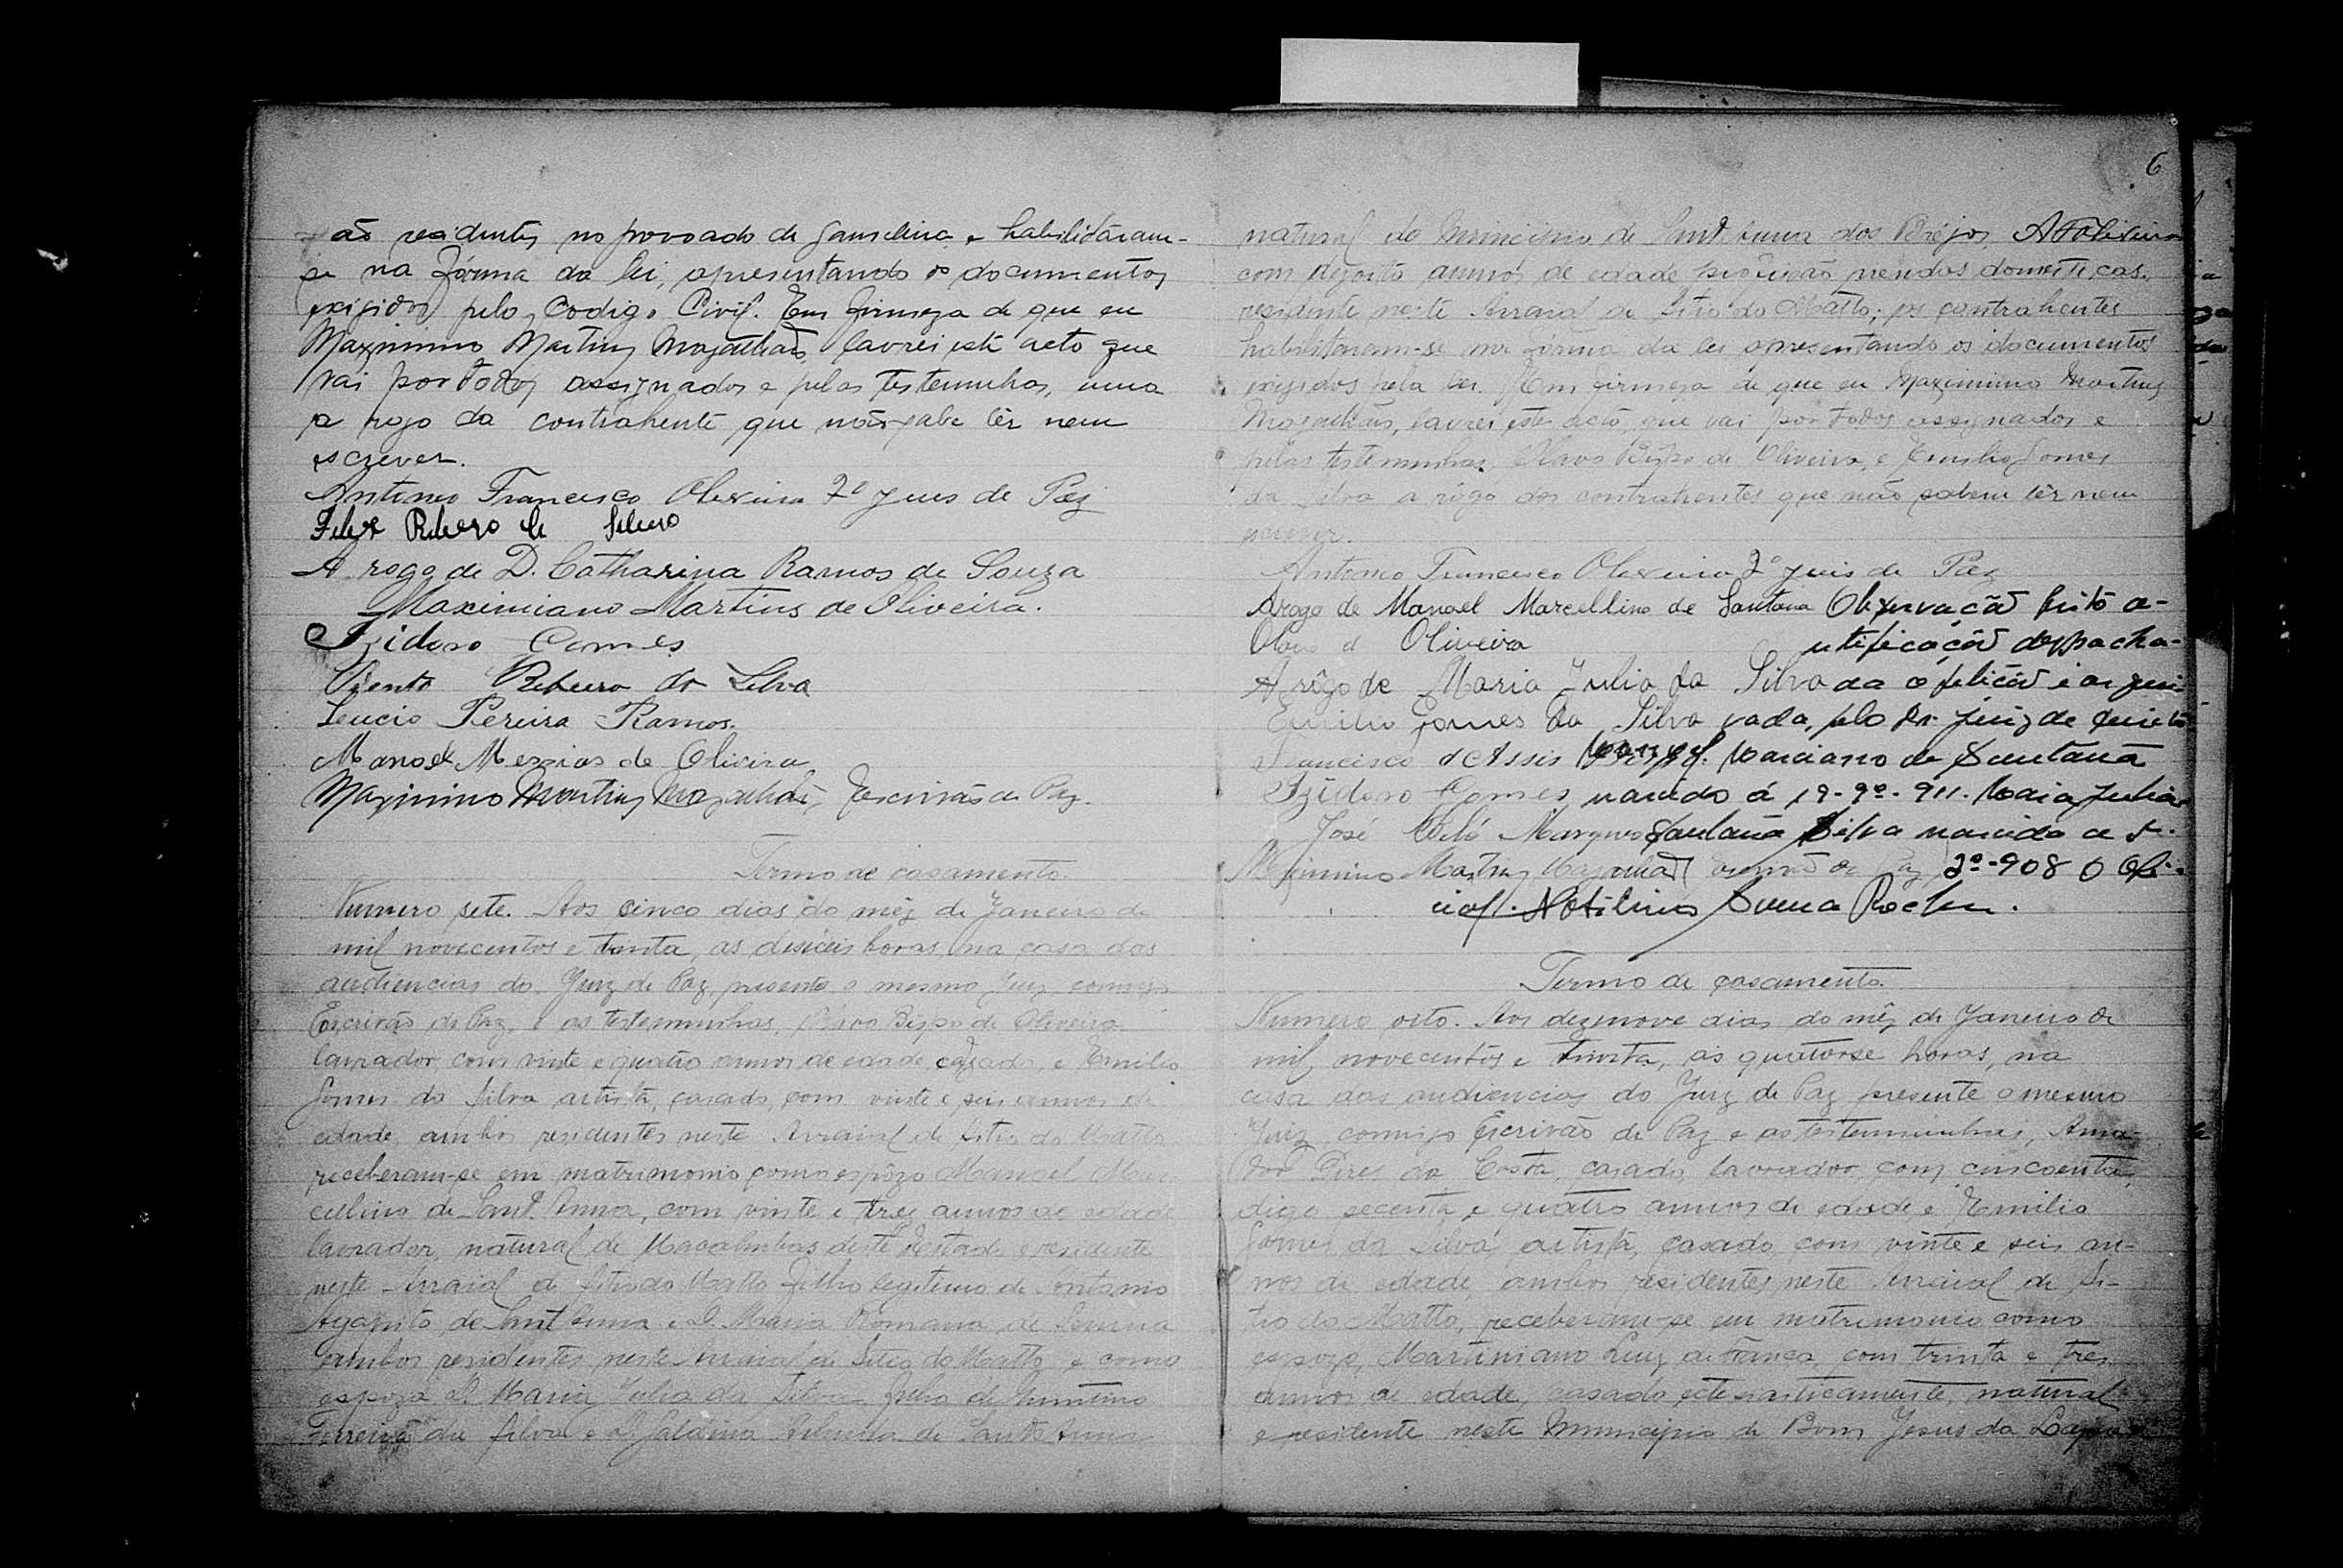 ão residentes no povoado de Gamelleira e habilitaram-
se na fórma da lei, apresentando os documentos
exigidos pelo Codigo Civil. Em firmeza de que eu
Maximino Martins Magalhães, lavrei este acto que
vai por todos assignados e pelas testemunhas, uma
a rogo da contrahente que não sabe lêr nem
escrever.
Antonio Francisco Oliveira 2º Juis de Paz
Ribero
A rogo de D. Catharina Ramos de Souza
Maximiano Martins de Oliveira.
Izidoro Gomes
Bento Ribeiro da Silva
Lucio Pereira Ramos.
Manoel Messias de Oliveira
Maximino Martins Magalhães, Escrivão de Paz.
Termo de casamento.
Numero sete. Aos cinco dias do mêz de Janeiro de
mil novecentos e trinta, as deseseis horas, na casa das
audiencias do Juiz de Paz, presente o mesmo Juiz commigo
Escrivão de Paz, e as testemunhas, Olavo Bispo de Oliveira
lavrador, com vinte e quatro annos de edade, cazado, e Emilio
Gomes da Silva artista, casado, com vinte e seis annos de
edade, ambos residentes neste Arraial de Sitio do Matto
receberam-se em matrimonio como espôzo Manoel Mar-
cellino de Sant'Anna, com vinte e trez annos de edade
lavrador, natural de Macahubas deste Estado e residente
neste Arraial de Sitio do Matto filho legitimo de Antonio
Agapito de Sant'Anna e D. Maria Romana de
ambos residentes neste Arraial de Sitio do Matto e como
espoza D. Maria Julia da Silva filha de
Ferreira da Silva e D. Galdina de Sant'Anna
6
natural do Municipio de Sant'Anna dos Bréjos, AFOliveira
com dezoito annos de edade profissão prendas domesticas.
residente neste Arraial de Sitio do Matto; os contrahentes
habilitaram-se na fórma da lei apresentando os documentos
exigidos pela lei. Em firmeza de que eu Maximino Martins
Magalhães, lavrei este acto, que vai por todos assignados e
pelas testemunhas, Olavo Bispo de Oliveira, e Emilio Gomes
da Silva a rôgo dos contrahentes que não sabem lêr nem
escrever.
Antonio Francisco Oliveira 2º Juis de Paz
Arogo de Manoel Marcellino de Santana Observação feito a-
Olavo d Oliveira utificação despacha-
A rôgo de Maria Julia da Silva da a petição e
Emilio Gomes da Silva vada, pelo Dr. Juiz de Direito
Francisco d'Assis Marciano de Santana
Izidoro Gomes, nascido á 19-9º-911. Maria Julia
José Marques Santana Silva nascida a
Maximino Martins Magalhães Escrivão de Paz 2º-908 O Ofi-
cial. Rocha.
Termo de casamento.
Numero oito. Aos dezenove dias do mêz de Janeiro de
mil, novecentos e trinta, as quatorse horas, na
casa das audiencias do Juiz de Paz presente o mesmo
Juiz commigo Escrivão de Paz e as testemunhas, Ama-
dor Pires da Costa, casado, lavrador, com cincoenta,
digo secenta e quatro annos de edade, e Emilio
Gomes da Silva, artista, casado, com vinte e seis an-
nos de edade, ambos residentes neste Arraial de Si-
tio do Matto, receberam-se em matrimonio como
espozo, Martiniano Luiz de França, com trinta e tres
annos de edade, casado eclesiasticamente, natural
e residente neste Municipio de Bom Jesus da Lapa